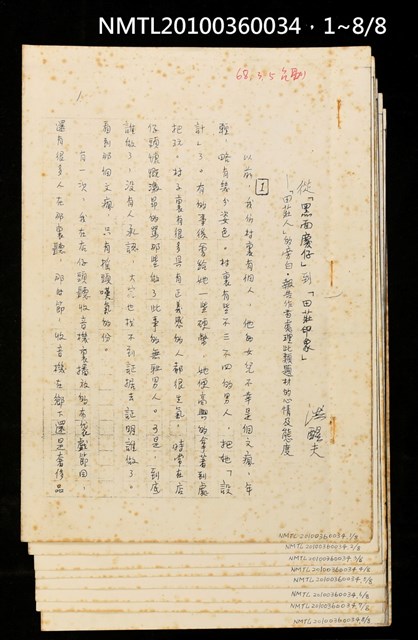 NMTL20100360034，1~8/8
68.3.5台副
1
從「黑面慶仔」到「田莊印象」
「田莊人」的旁白，報告作者處理此類題材的心情及態度
洪醒夫
1
以前，我的村裏有個人，他的女兒不幸是個文瘋，年
輕，略有幾分姿色。村裏有些不三不四的男人，把她「設
計」了。有的事後會給她一些硬幣，她便高興的拿著到處
把玩。村子裏有很多具有正義感的人都很生氣，時常在店
仔頭憤慨激昂的罵那些做了此事的無恥男人。可是，到底
誰做了，沒有人承認，大家也找不到証據去証明誰做了，
看到那個文瘋，只有搖頭嘆氣的份。
有一次，我在店仔頭聽收音機裏播放的布袋戲節目
還有很多人在那裏聽，那時節，收音機在鄉下還是奢侈品
NMTL20100360034.1/8
NMTL20100360034.2/8
NMTL20100360034.3/8
NMTL20100360034.4/8
NMTL20100360034.5/8
NMTL20100360034.6/8
NMTL20100360034.7/8
NMTL20100360034.8/8